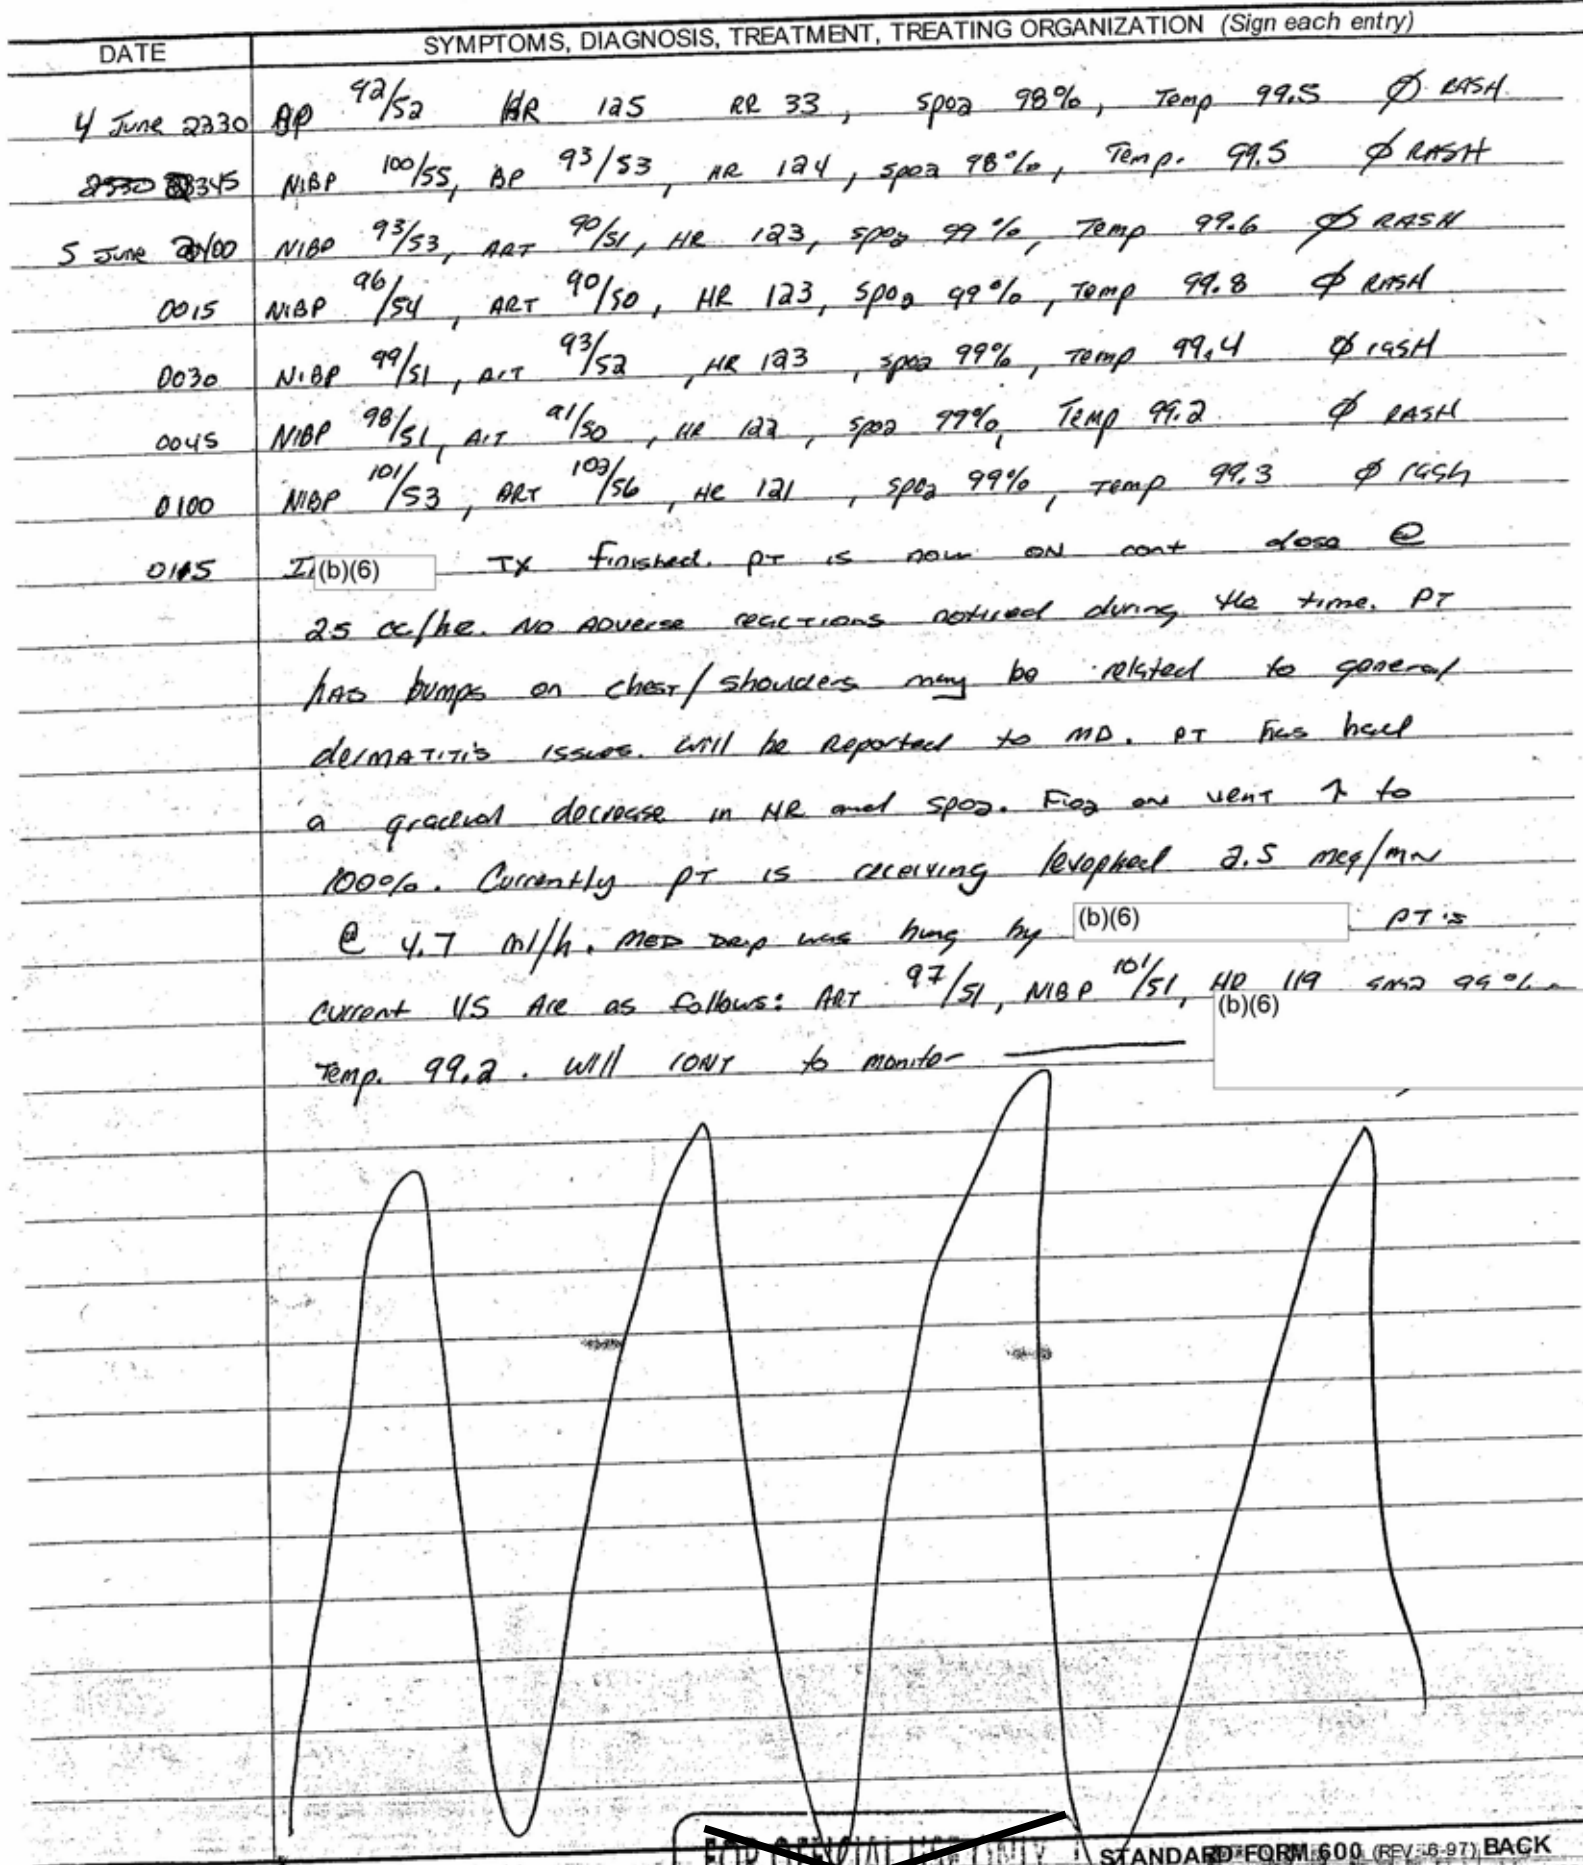 DATE SYMPTOMS, DIAGNOSIS, TREATMENT, TREATING ORGANIZATION (Sign each entry)
4 June 2330 BP 92/52 HR 125 RR 33, Spo2 98%, Temp 99.5 Ø RASH
2345 NIBP 100/55, BP 93/53, HR 124, Spo2 98%, Temp. 99.5 Ø RASH
5 June 2400 NIBP 93/53, ART 90/51, HR 123, Spo2 99%, Temp 99.6 Ø RASH
0015 NIBP 96/54, ART 90/50, HR 123, Spo2 99%, Temp 99.8 Ø RASH
0030 NIBP 99/51, ArT 93/52, HR 123, Spo2 99%, Temp 99.4 Ø rASH
0045 NIBP 98/51, ArT 91/50, HR 122, Spo2 99%, Temp 99.2 Ø RASH
0100 NIBP 101/53, ART 102/56, HR 121, Spo2 99%, Temp 99.3 Ø rash
0115 (b)(6) TX finished. PT is now ON cont dose @
25 cc/hr. NO ADverse reactions noticed during the time. PT
HAS bumps on chest/shoulders may be related to general
derMATITIS issues. Will be Reported to MD. PT has had
a gradual decrease in HR and Spo2. Fio2 on vent ↑ to
100%. Currently PT is receiving levophed 2.5 mcg/mn
@ 4.7 ml/h. MED Drip was hung by (b)(6) PT's
current VS Are as follows: ART 97/51, NIBP 101/51, HR 119 Spo2 99%
(b)(6)
Temp. 99.2. Will CONT to monitor
FOR OFFICIAL USE ONLY
STANDARD FORM 600 (REV. 6-97) BACK